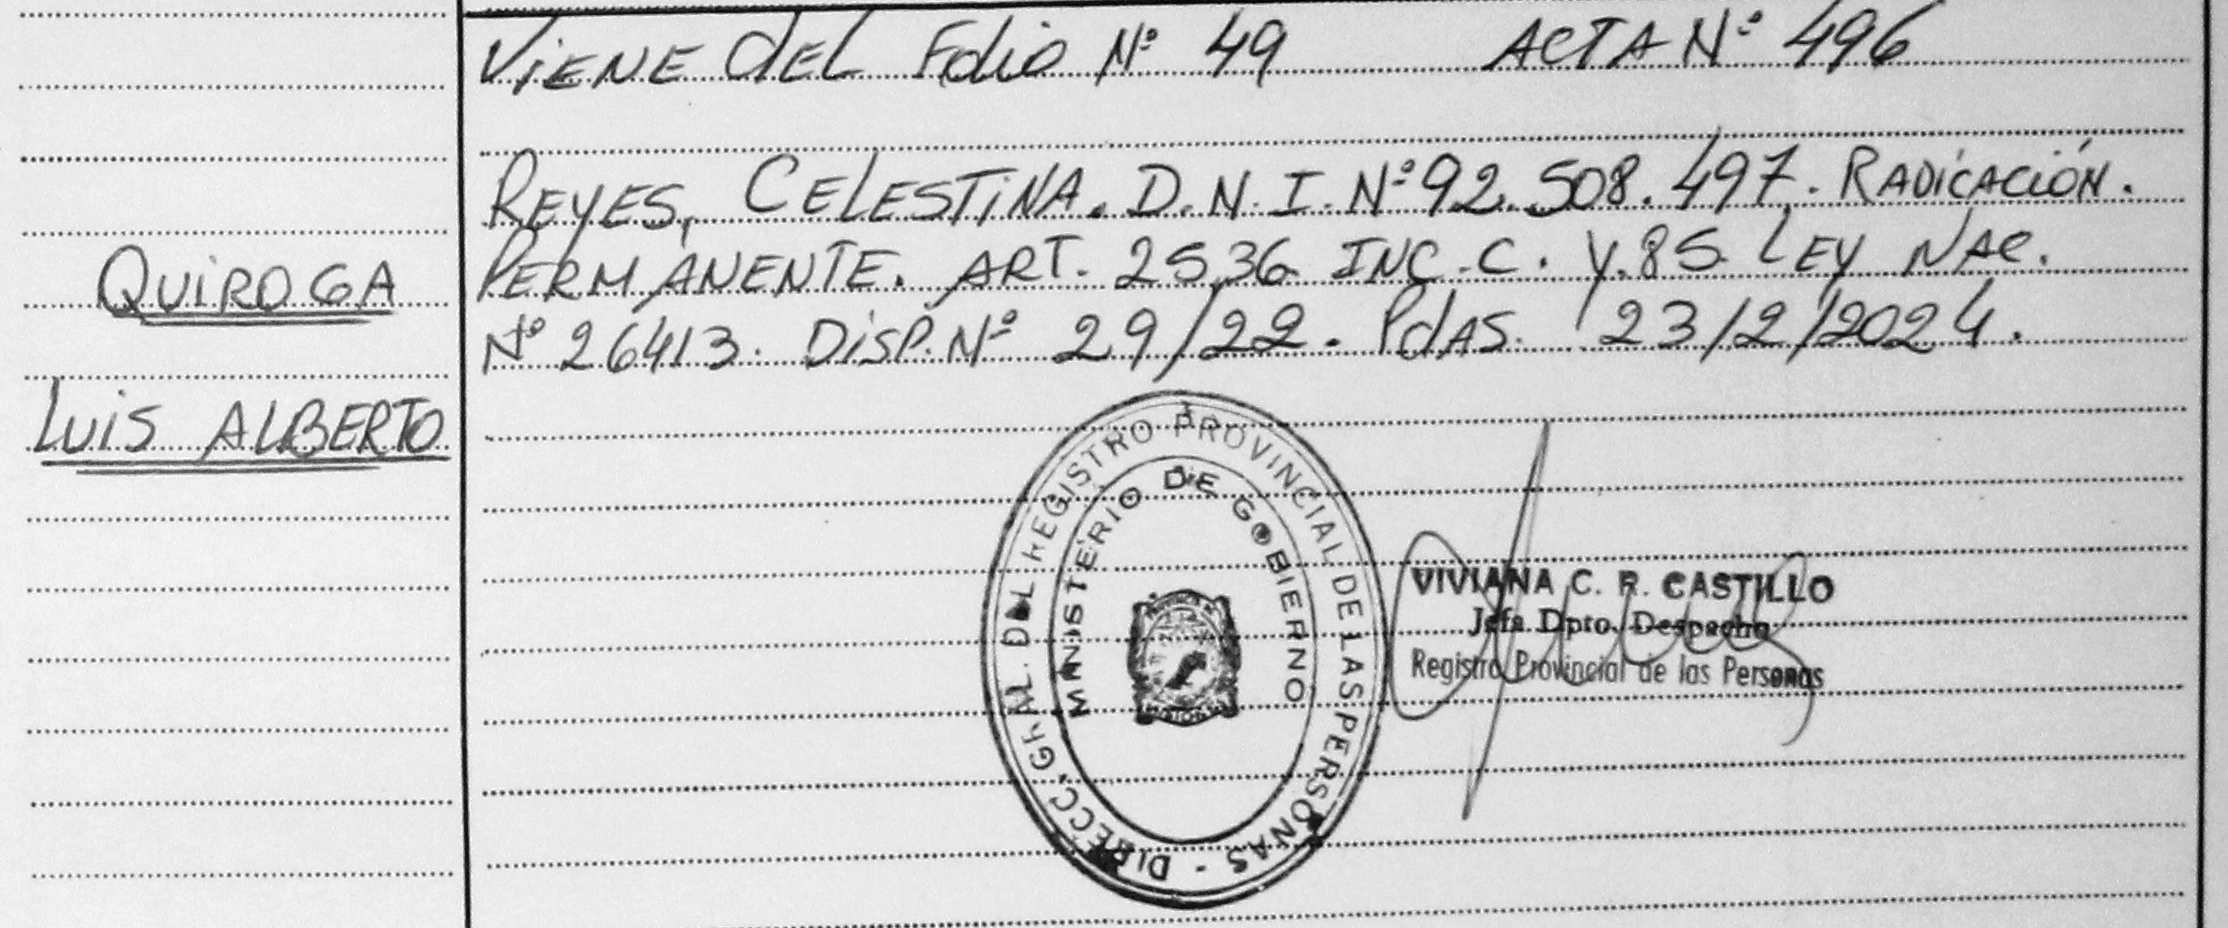 Viene del Folio Nº 49 ACTA Nº 496
REYES, CELESTINA. D.N.I. Nº 92.508.497. RADICACIÓN.
QUIROGA
PERMANENTE. ART. 2536 INC. C. Y. 85 LEY NAC.
Nº 26413. DISP. Nº 29/22. PdAS. 23/2/2024.
LUIS ALBERTO
DIRECC. GRAL. DEL REGISTRO PROVINCIAL DE LAS PERSONAS -
MINISTERIO DE GOBIERNO
VIVIANA C. R. CASTILLO
Jefa Dpto. Despacho
Registro Provincial de las Personas